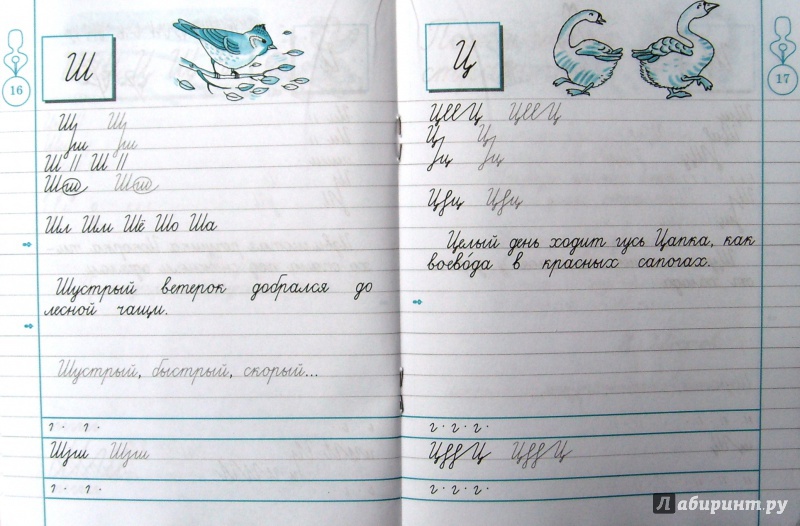 16
Ш
Ш Ш
ш ш
Ш || Ш ||
Шш Шш
Шл Шм Шё Шо Ша
Шустрый ветерок добрался до
лесной чащи.
Шустрый, быстрый, скорый...
Шш Шш
17
Ц
Ц Ц Ц Ц
Ц Ц
ц ц
Цц Цц
Целый день ходит гусь Цапка, как
воево́да в красных сапогах.
Ц Ц Ц Ц
Лабиринт.ру